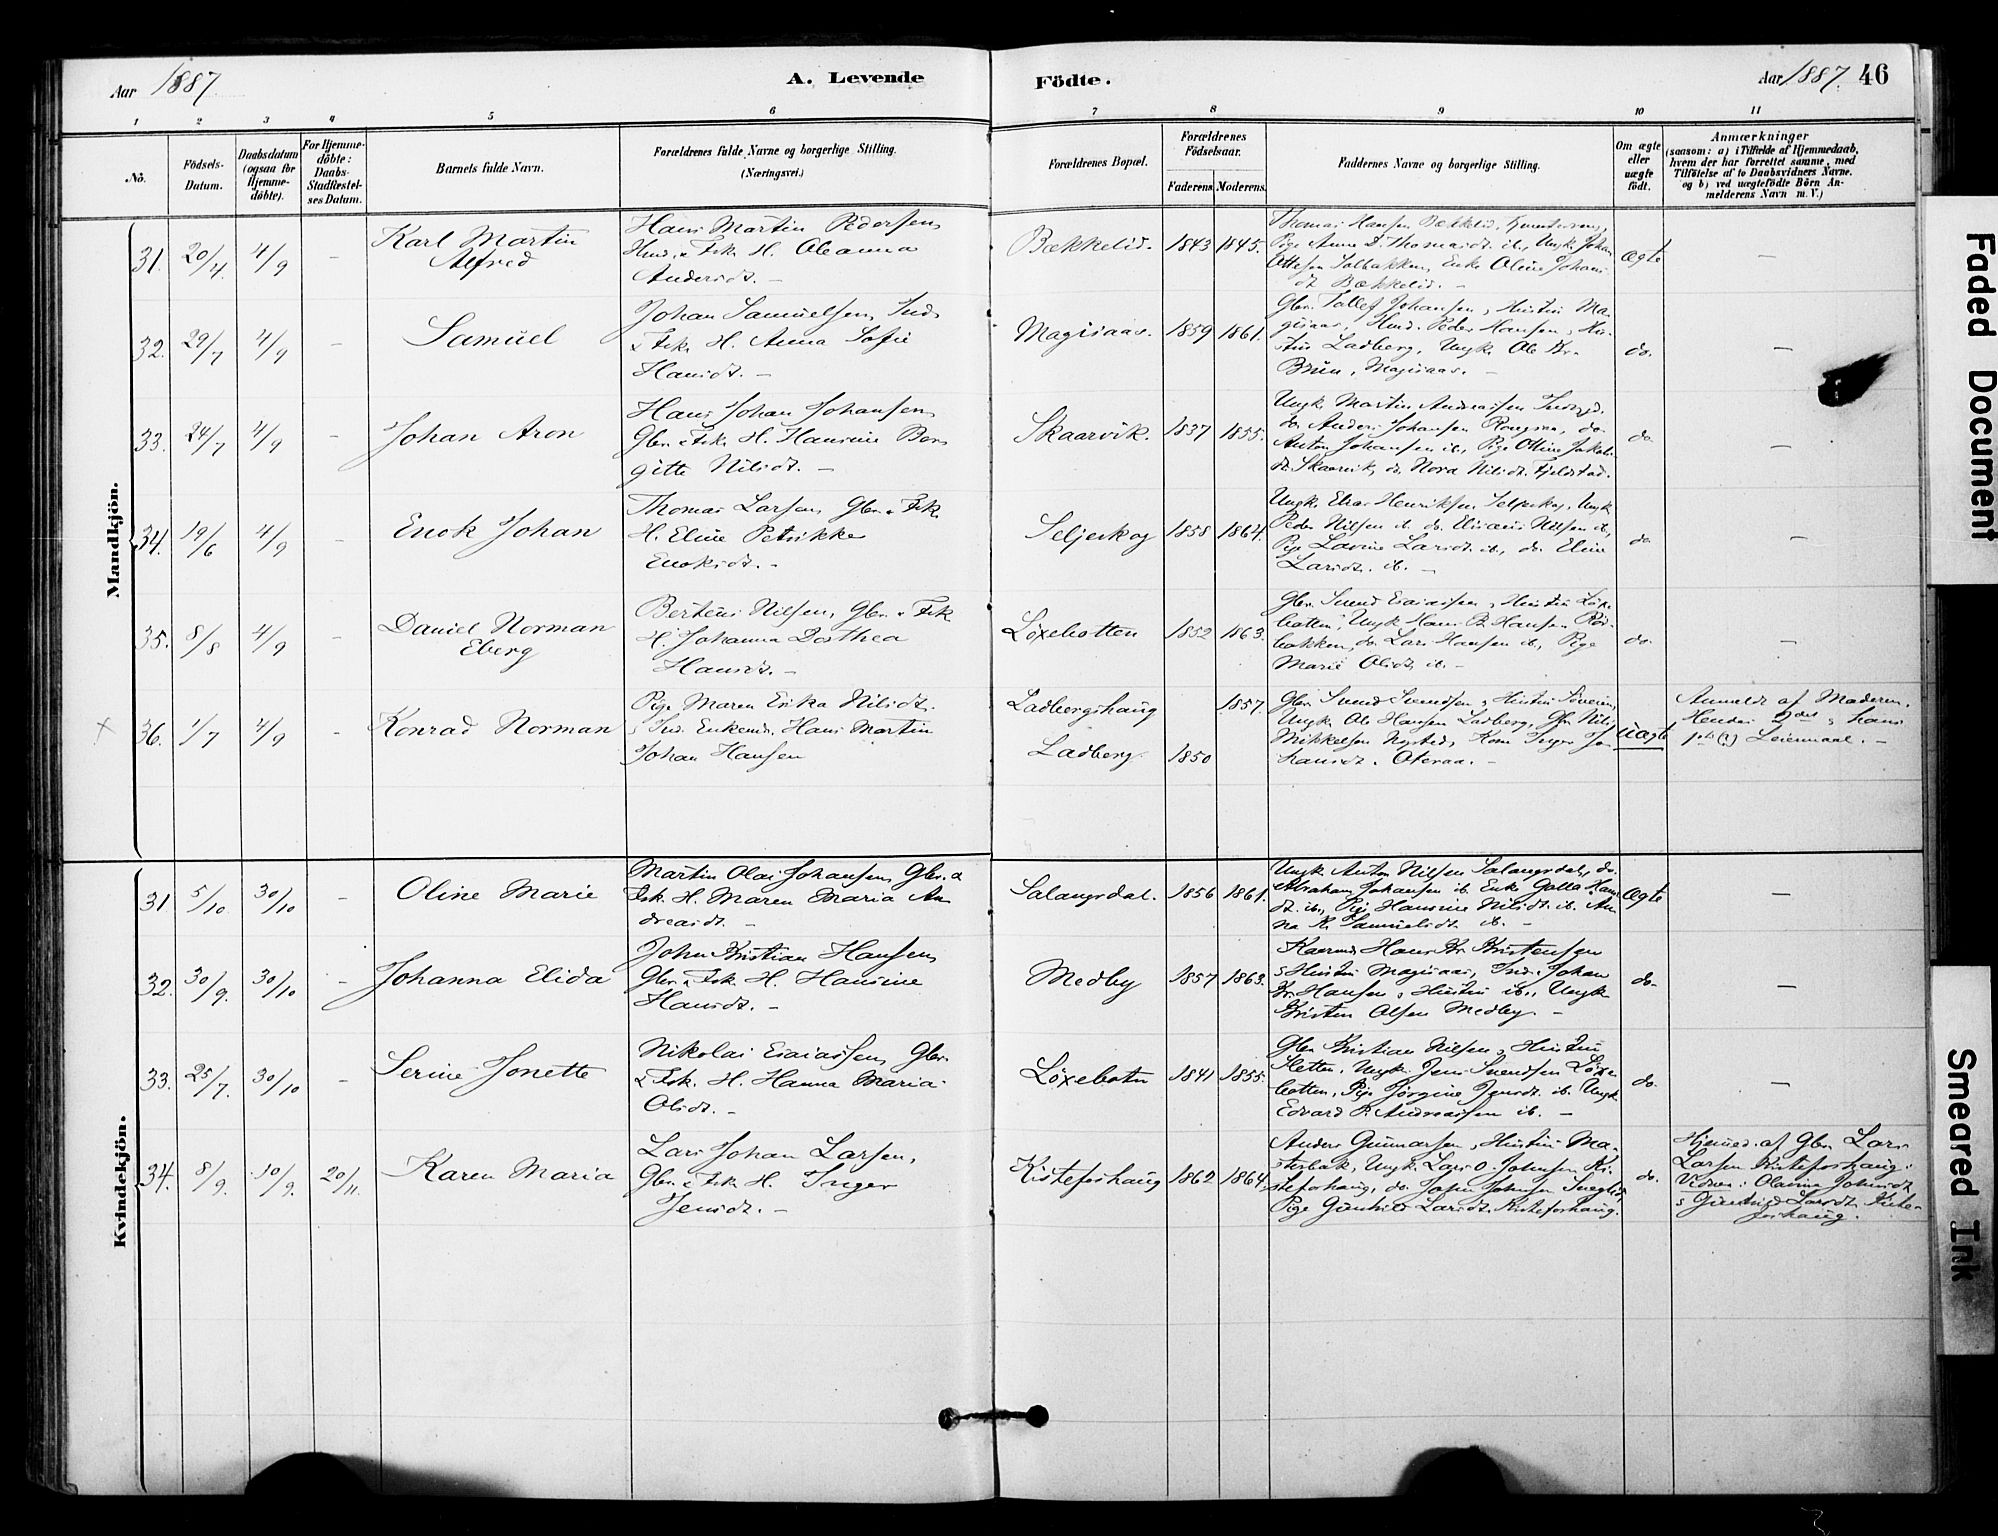 Aar 1887
A. Levende
Födte.
Aar 1887. 46
1 2 3 4 5 6 7 8 9 10 11
No.
Födsels-
Datum.
Daabsdatum
(ogsaa for
Hjemme-
döbte).
For Hjemme-
döbte:
Daabs-
Stadfæstel-
ses Datum.
Barnets fulde Navn.
Forældrenes fulde Navne og borgerlige Stilling.
(Næringsvei.)
Forældrenes Bopæl.
Forældrenes
Födselsaar.
Faderens Moderens.
Faddernes Navne og borgerlige Stilling.
Om ægte
eller
uægte
født.
Anmærkninger
(saasom: a) i Tilfælde af Hjemmedaab,
hvem der har forrettet samme, med
Tilföielse af to Daabsvidners Navne.
og b) ved uægtefödte Börn An-
melderens Navn m. V.)
Mandkjön.
31. 20/4. 4/9 -
Karl Martin
Alfred
Hans Martin Pedersen,
Hmd. & Fsk. H. Oleanna
Andersdt. -
Bækkelid. 1843 1845.
Thomas Hansen Bækkelid,
Pige Anne D. Thomasdt. ib., Ungk. Johan
Ottesen Solbakken, Enke Oline Johans
dt. Bækkelid. -
Ægte -
32. 29/7 4/9 -
Samuel
Johan Samuelsen, Ind.
& Fsk. H. Anna Sofie
Hansdt. -
Magisaas. 1859 1861.
Gbr. Tollef Johansen, Hustru Ma-
gisaas, Hmd. Peder Hansen, Hu-
stru Ladberg, Ungk. Ole Kr.
Bruun, Magisaas. -
do. -
33. 24/7 4/9 -
Johan Aron
Hans Johan Johansen,
Gbr. & Fsk. H. Hansine Ber
gitte Nilsdt. -
Skaarvik. 1837 1855.
Ungk. Martin Andreassen
do. Anders Johansen do.
Anton Johansen ib., Pige Oline Jakobs
dt. Skaarvik, do. Nora Nilsdt. Fjeldstad.
do. -
34. 19/6 4/9 -
Enok Johan
Thomas Larsen, Gbr. & Fsk.
H. Eline Petrikke
Enoksdt. -
Seljeskog 1858 1864.
Ungk. Elias Henriksen Seljeskog, Ungk.
Peder Nilsen ib. do. Nilsen ib.,
Pige Lavine Larsdt. ib., do. Eline
Larsdt. ib. -
do. -
35. 8/8 4/9 -
Daniel Norman
Eberg
Berteus Nilsen, Gbr. & Fsk
H. Johanna Dorthea
Hansdt. -
Löxebotten 1852 1863.
Gbr. Svend Esaiassen, Hustru Löxe
botten, Ungk. Hans P. Hansen Rös-
bakken, do. Lars Hansen ib., Pige
Marie Olsdt. ib. -
do. -
× 36. 1/7 4/9
Konrad Norman
Pige Maren Erika Nilsdt.
& Ind. Enkemd. Hans Martin
Johan Hansen
Ladbergshaug 1857.
Ladberg. 1850
Gbr. Svend Svendsen, Hustru
Ungk. Ole Hansen Ladberg, Gbr. Nils
Mikkelsen Nysted, Kone Inger Jo-
hansdt. Oteraa. -
Uægte
Anmeldt af Moderen.
Hendes 2det & hans
1ste (?) Leiermaal. -
Kvindekjön.
31 5/10. 30/10 -
Oline Marie
Martin Olai Johansen, Gbr. &
Fsk. H. Maren Maria An
dreasdt. -
Salangsdal. 1856 1861.
Ungk. Anton Nilsen Salangsdal, do.
Abraham Johansen ib. Enke Golla Hans
dt. ib., Pige Hansine Nilsdt. ib. An
na K. Samuelsdt. ib. -
Ægte -
32. 30/9. 30/10 -
Johanna Elida
John Kristian Hansen,
Gbr. & Fsk. H. Hansine
Hansdt. -
Medby 1857 1863.
Kaarmd. Hans Kr. Kristensen
& Hustru Magisaas, Ind. Johan
Kr. Hansen & Hustru ib., Ungk.
Kristen Olsen Medby. -
do. -
33. 25/7. 30/10 -
Serine Jonette
Nikolai Esaiassen, Gbr.
& Fsk. H. Hanna Maria
Olsdt. -
Löxebotn 1841 1855.
Gbr. Kristian Nilsen, Hustru
Sletten, Ungk. Jens Svendsen Löxe
botten, Pige Jörgine Jensdt. ib. Ungk.
Edvard P. Andreassen ib. -
do. -
34. 8/9. 10/9. 20/11.
Karen Maria
Lars Johan Larsen,
Gbr. & Fsk. H. Inger
Jensdt. -
Kisteforshaug 1862 1864.
Anders Gunnarsen, Hustru Ma-
sterbak, Ungk. Lars O. Johnsen Ki-
steforshaug, do. John Johnsen
Pige Gunhild Larsdt. Kisteforshaug.
do.
Hjemmed. af Gbr. Lars
Larsen Kisteforshaug.
Vidner: Oleanna Johnsdt.
& Gunhild Larsdt. Kiste-
forshaug.
Faded Document
Smeared Ink